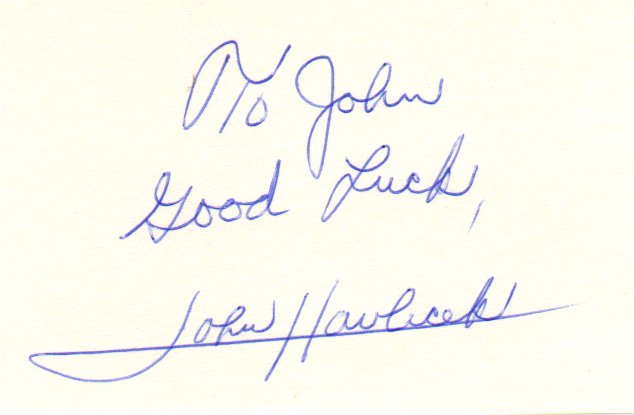 To John
Good Luck,
John Havlicek